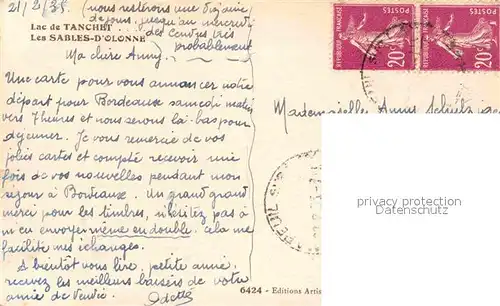 21/2/35 (nous resterons une dizaine
de jours, jusqu'au mercredi
des cendres très
probablement
Lac de TANCHET
Les SABLES-D'OLONNE
Ma chère Anny,
Une carte pour vous annoncer notre
départ pour Bordeaux samedi matin
vers 7 heures et nous serons là-bas pour
déjeuner. Je vous remercie de vos
jolies cartes et compte recevoir une
fois de vos nouvelles pendant mon
séjour à Bordeaux. Un grand grand
merci pour les timbres, n'hésitez pas à
m'en envoyer même en double, cela me
facilite mes échanges.
A bientôt vous lire, petite amie,
recevez les meilleurs baisers de votre
amie de Vendée. Odette
POSTES 20c REPUBLIQUE FRANÇAISE
POSTES 20c REPUBLIQUE FRANÇAISE
Mademoiselle Anny
privacy protection
Datenschutz
6424 - Editions Artis